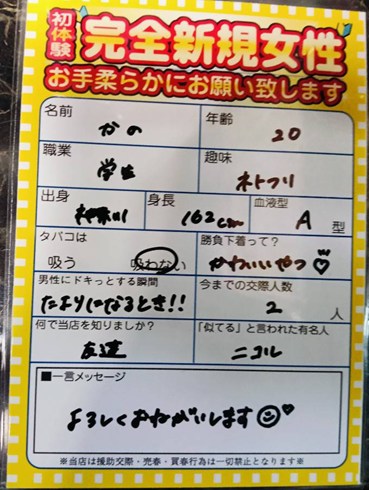 初体験 完全新規女性
お手柔らかにお願い致します
名前 かの 年齢 20
職業 学生 趣味 ネトフリ
出身 神奈川 身長 162cm 血液型 A 型
タバコは 吸う 吸わない 勝負下着って? かわいいやつ♡
男性にドキっとする瞬間 たよりになるとき!! 今までの交際人数 2 人
何で当店を知りましたか? 友達 「似てる」と言われた有名人 ニコル
■一言メッセージ
よろしくおねがいします☺♡
※当店は援助交際・売春・買春行為は一切禁止となります※